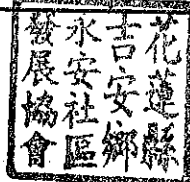 花蓮縣
吉安鄉
永安社區
發展協會